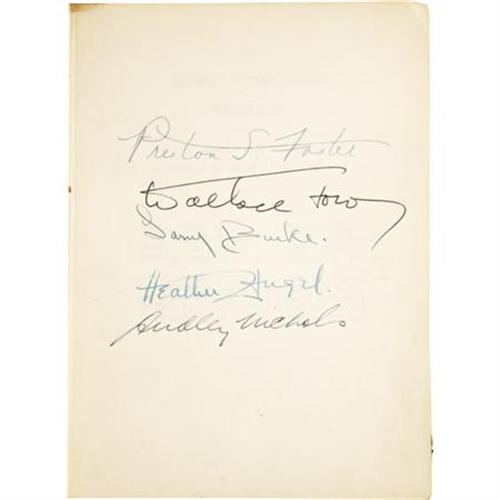 Preston S. Foster
Wallace Ford
Burke.
Heather Angel.
Dudley Nichols